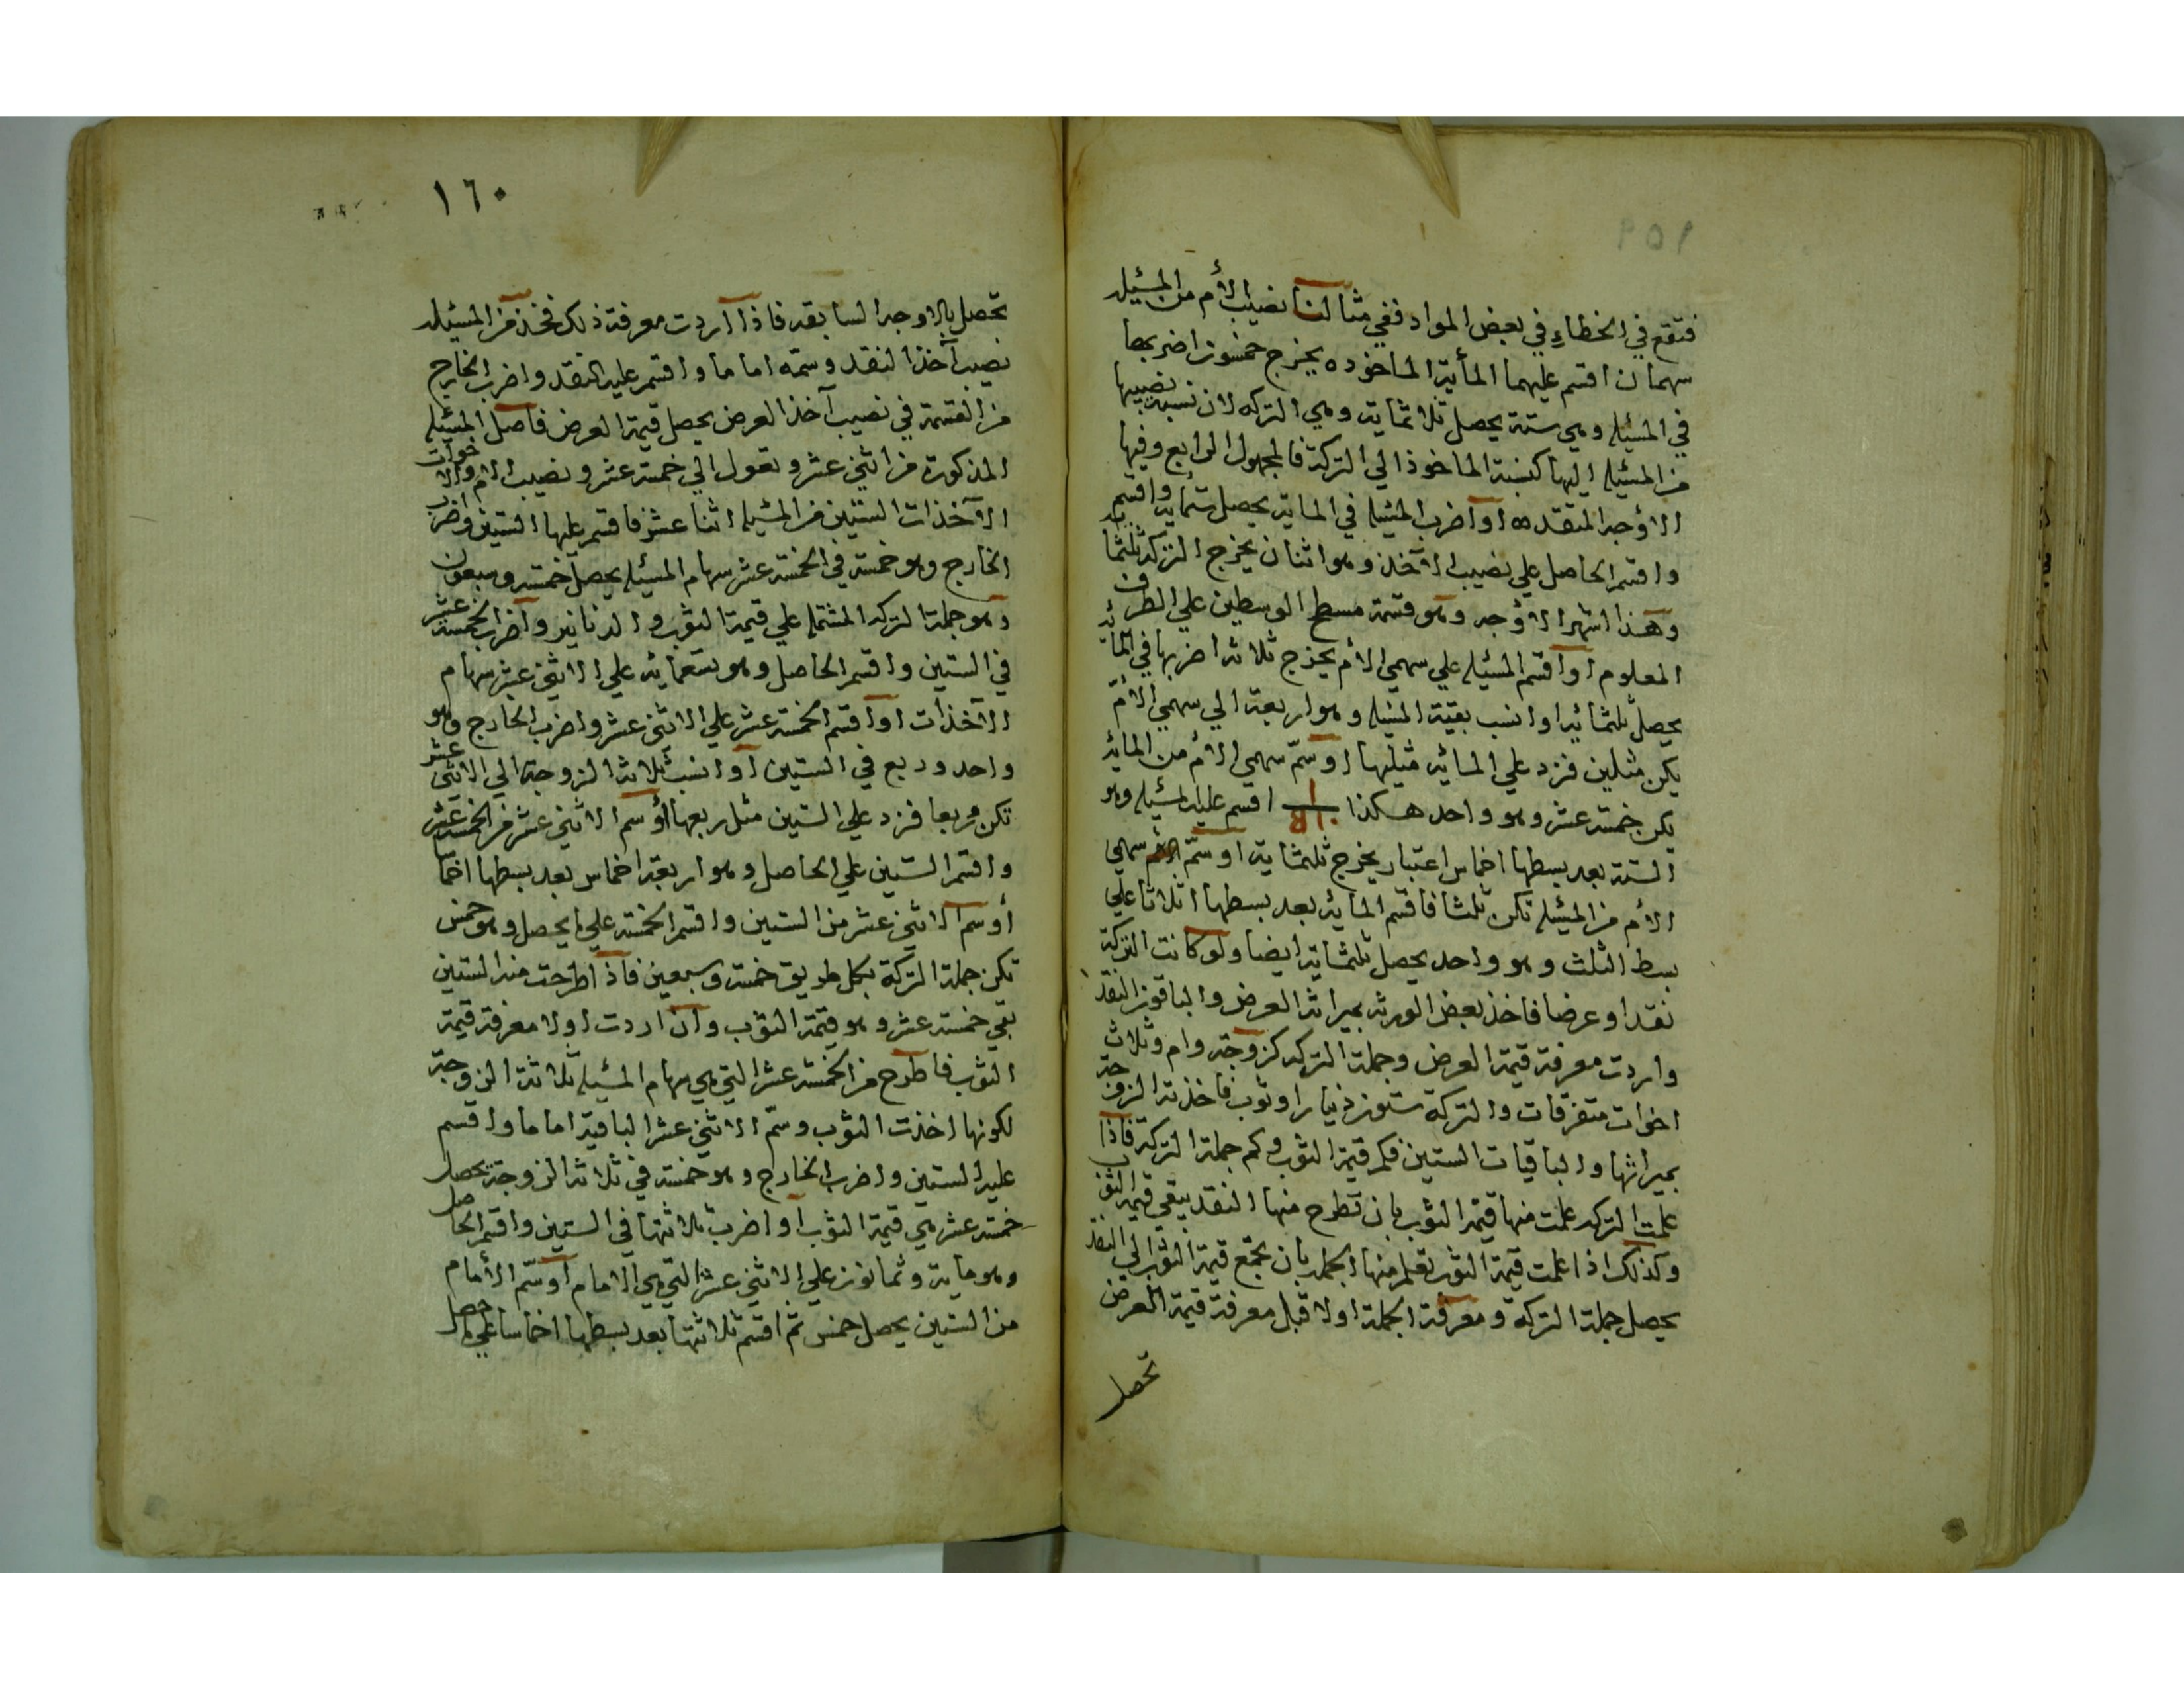 ١٥٩
فتقع في الخطاء في بعض المواد ففي مثالنا نصيب الأم من المسئلة
سهمان اقسم عليهما المأية الماخوده يخرج خمسون اضربها
في المسئلة وهي ستة يحصل ثلاثماية وهي التركه لان نسبة نصيبها
من المسئلة اليها كنسبة الماخوذ الي التركة فالمجهول الرابع وفيها
الاوجه المتقدمه او اضرب المسئلة في الماية يحصل ستماية واقسم
واقسم الحاصل علي نصيب الآخذ وهو اثنان يخرج التركة ثلثماية
وهذا اشهر الاوجه وهو قسمة مسطح الوسطين علي الطرف
المعلوم او اقسم المسئلة علي سهمي الأم يخرج ثلاثة اضربها في المأية
يحصل ثلثمائة او انسب بقية المسئلة وهو اربعة الي سهمي الأم
يكن مثلين فزد علي المائة مثليها او سمّ سهمي الأم من المائة
يكن خمس عشر وهو واحد هكذا ١ / ٥١٠ اقسم عليه المسئلة وهو
الستة بعد بسطها اخماس اعتبار يخرج ثلثماية او سمّ سهمي
الأم من المسئلة تكن ثلثا فاقسم المائة بعد بسطها اثلاثا علي
بسط الثلث وهو واحد يحصل ثلثماية ايضا ولو كانت التركة
نقدا وعرضا فاخذ بعض الورثة بميراثه العرض والباقون النقد
واردت معرفة قيمة العرض وجملة التركة كزوجة وام وثلاث
اخوات متفرقات والتركة ستون دنيارا وثوب فاخذته الزوجة
بميراثها والباقيات الستين فكم قيمة الثوب وكم جملة التركة فاذا
علمت التركه علمت منها قيمة الثوب بان تطرح منها النقد يبقي قيمة الثوب
وكذلك اذا علمت قيمة الثوب تعلم منها الجملة بان تجمع قيمة الثوب الي النقد
يحصل جملة التركة ومعرفة الجملة اولا قبل معرفة قيمة العرض
تحصل
١٦٠
تحصل بالاوجه السابقه فاذا اردت معرفة ذلك فخذ من المسئلة
نصيب آخذ النقد وسمّه اماما واقسم عليه النقد واضرب الخارج
من القسمة في نصيب آخذ العرض يحصل قيمة العرض فاصل المسئلة
المذكورة من اثني عشر وتعول الي خمسة عشر ونصيب الام والاخوات
الآخذات الستين من المسئلة اثنا عشر فاقسم عليها الستين واضرب
الخارج وهو خمسة في الخمسة عشر سهام المسئلة يحصل خمسة وسبعون
وهو جملة التركة المشتملة علي قيمة الثوب والدنانير واضرب الخمسة عشر
في الستين واقسم الحاصل وهو تسعمائة علي الاثني عشر سهام
الآخذات او اقسم الخمسة عشر علي الاثني عشر واضرب الخارج وهو
واحد وربع في الستين او انسب ثلاثة الزوجة الي الاثني عشر
تكن مربعا فزد علي الستين مثل ربعها او سم الاثني عشر من الخمسة عشر
واقسم الستين علي الحاصل وهو اربعة اخماس بعد بسطها اخماسا
أو سم الاثني عشر من الستين واقسم الخمسة علي ما يحصل وهو خمس
تكن جملة التركة بكل طريق خمسة وسبعين فاذا طرحت منه الستين
بقي خمسة عشر وهو قيمة الثوب وان اردت اولا معرفة قيمة
الثوب فاطرح من الخمسة عشر التي هي سهام المسئلة ثلاثة الزوجة
لكونها اخذت الثوب وسمّ الاثني عشر الباقية اماما واقسم
عليه الستين واضرب الخارج وهو خمسة في ثلاثة الزوجة يحصل
خمسة عشر هي قيمة الثوب او اضرب ثلاثتها في الستين واقسم الحاصل
وهو ماية وثمانون علي الاثني عشر التي هي الامام او سمّ الأمام
من الستين يحصل خمس ثم اقسم ثلاثتها بعد بسطها اخماسا علي ما حصل